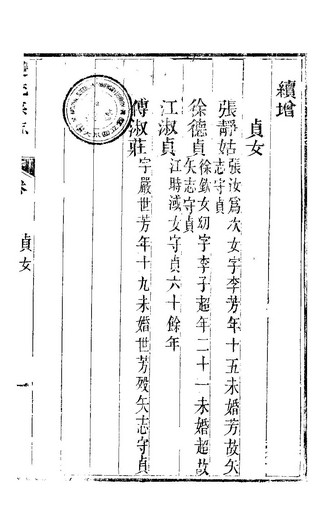 續增
貞女
張靜姑張汝爲次女字李芳年十五未婚芳故矢
志守貞
徐德貞徐欽女幼字李子超年二十一未婚超故
矢志守貞
江淑貞江時淢女守貞六十餘年
傅淑莊字嚴世芳年十九未婚世芳歿矢志守貞
卷
貞女
一